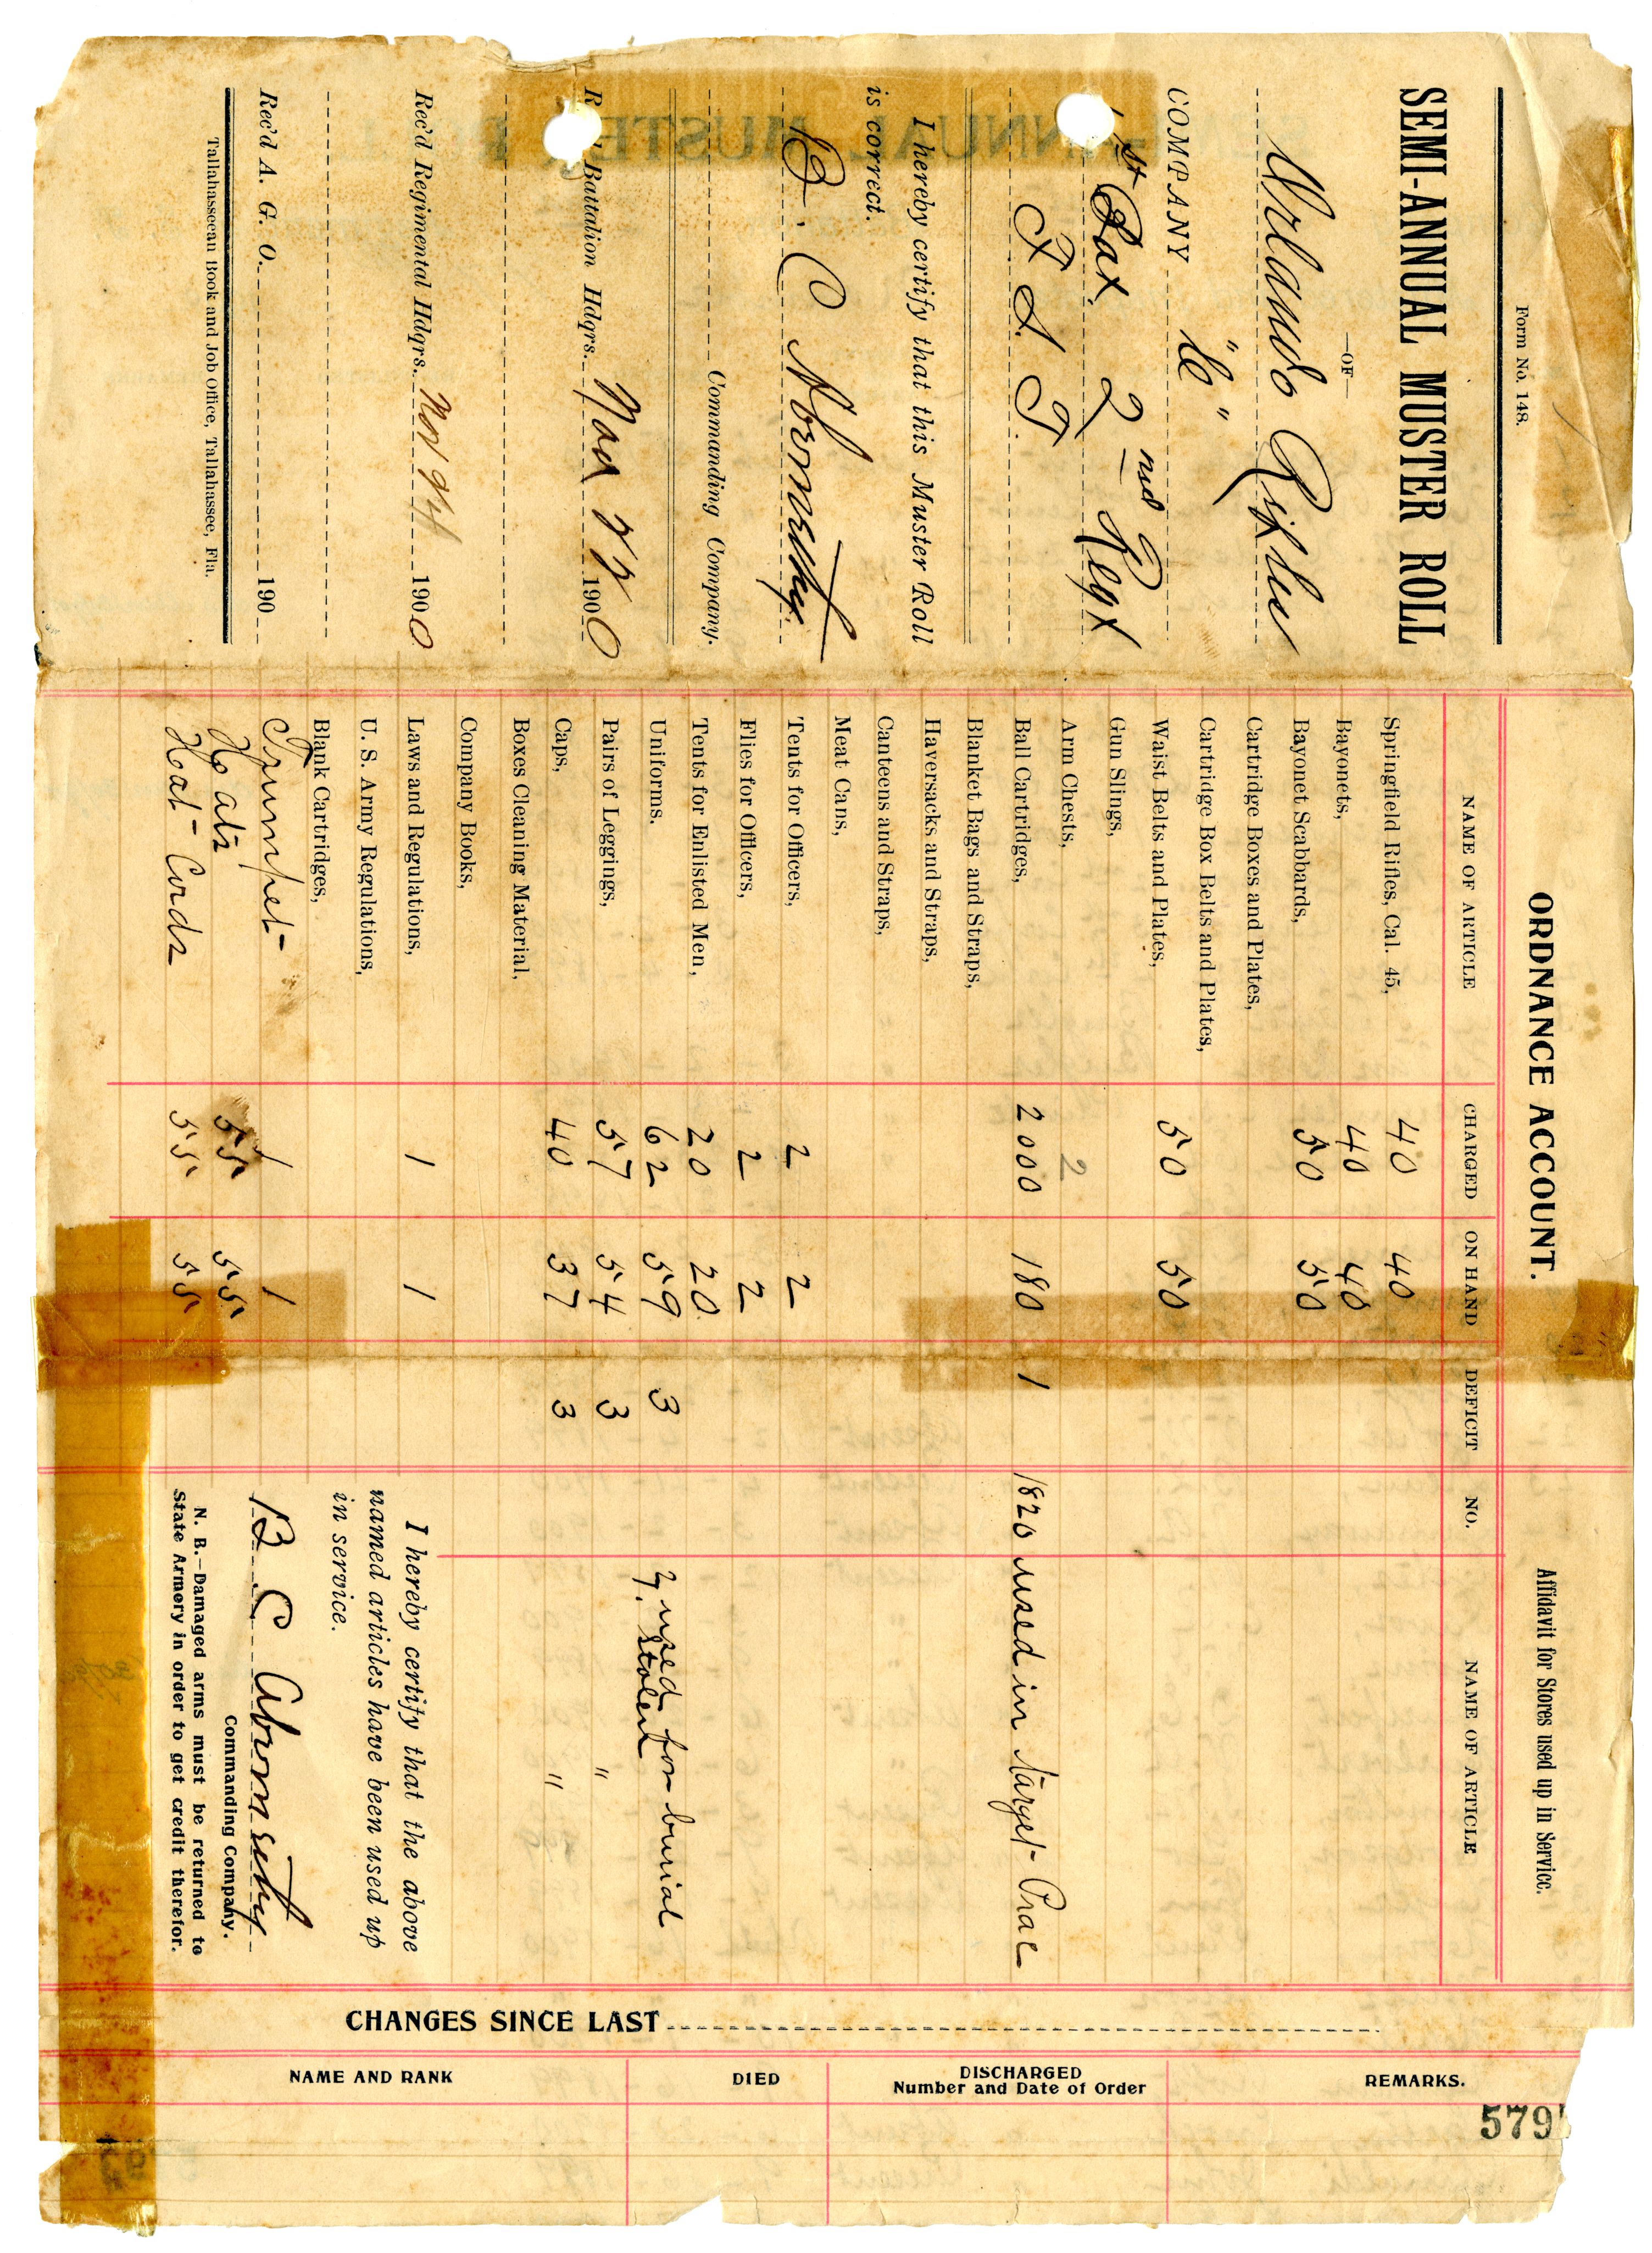 Form No. 148.
SEMI-ANNUAL MUSTER ROLL
—OF—
Orlando Rifles
COMPANY "C"
1st Bat. 2nd Regt
F. S. T.
I hereby certify that this Muster Roll
is correct.
B. C. Abernethy
Commanding Company.
Battalion Hdqrs. Nov 22 1900
Rec'd Regimental Hdqrs. Nov 24 1900
Rec'd A. G. O. 190
Tallahasseean Book and Job Office, Tallahassee, Fla.
ORDNANCE ACCOUNT.
NAME OF ARTICLE CHARGED ON HAND DEFICIT
Springfield Rifles, Cal. 45, 40 40
Bayonets, 40 40
Bayonet Scabbards, 50 50
Cartridge Boxes and Plates,
Cartridge Box Belts and Plates,
Waist Belts and Plates, 50 50
Gun Slings,
Arm Chests, 2
Ball Cartridges, 2000 180 1
Blanket Bags and Straps,
Haversacks and Straps,
Canteens and Straps,
Meat Cans,
Tents for Officers, 2 2
Flies for Officers, 2 2
Tents for Enlisted Men, 20 20
Uniforms. 62 59 3
Pairs of Leggings, 57 54 3
Caps, 40 37 3
Boxes Cleaning Material,
Company Books,
Laws and Regulations, 1 1
U. S. Army Regulations,
Blank Cartridges,
Trumpet 1 1
Hats 55 55
Hat Cords 55 55
Affidavit for Stores used up in Service.
NO. NAME OF ARTICLE
1820 used in Target Prac
2 used for burial
1 Stolen
"
"
I hereby certify that the above
named articles have been used up
in service.
B C Abernethy
Commanding Company.
N. B.—Damaged arms must be returned to
State Armory in order to get credit therefor.
CHANGES SINCE LAST
NAME AND RANK DIED DISCHARGED REMARKS.
Number and Date of Order
579